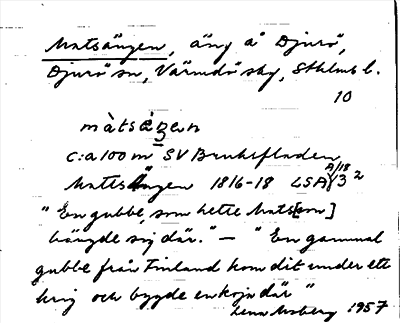 Matsängen, äng å Djurö,
Djurö sn, Värmdö skg, Sthlms l.
10
màtsǟŋen
c:a 100 m SV Bruksfladen
Mattsängen 1816-18 LSA A/18 13 2
"En gubbe, som hette Mats[son]
hängde sig där." – "En gammal
gubbe från Finland kom dit under ett
krig och bygde en koja där"
1957